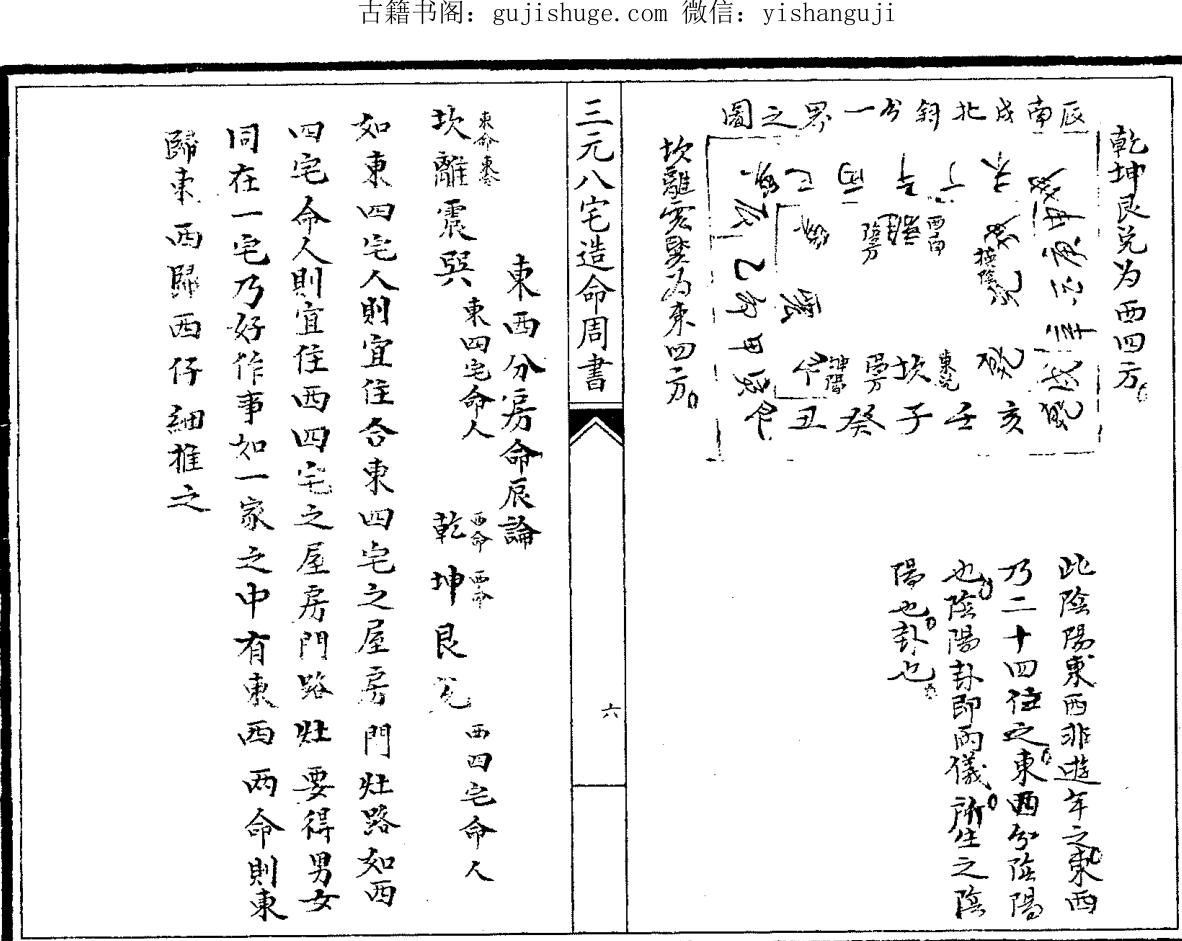 古籍书阁：gujishuge.com 微信：yishanguji
乾坤艮兑为西四方
圖之界一分斜北戌南辰
坎離震巽为東四方
丁
丙
巳
申
辰
乙
甲
震
坎
亥
壬
子
癸
丑
此陰陽東西非遊年之東西
乃二十四位之東西分陰陽
也陰陽卦即兩儀所生之陰
陽也卦也
三元八宅造命周書
六
東西分房命辰論
坎離震巽 東四宅命人 乾坤艮兑 西四宅命人
東命
西命 西命
如東四宅人則宜住合東四宅之屋房門灶路如西
四宅命人則宜住西四宅之屋房門路灶要得男女
同在一宅乃好作事如一家之中有東西兩命則東
歸東西歸西仔細推之